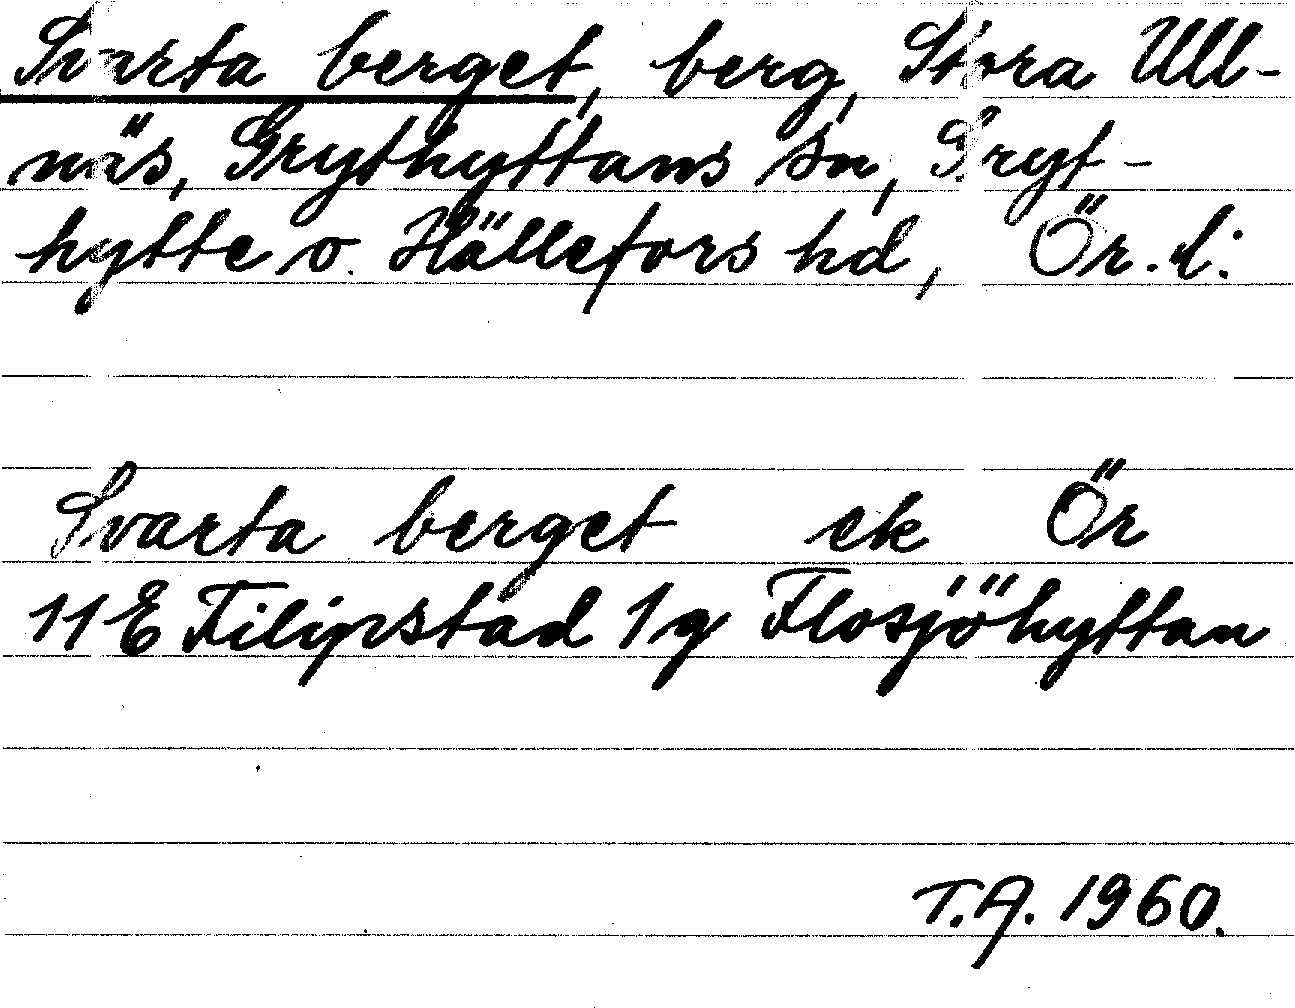 Svarta berget, berg, Stora Ull-
näs, Grythyttans sn, Gryt-
hytte o. Hällefors hd, Ör. l:
Svarta berget ek Ör
11E Filipstad 1g Flosjöhyttan
T.A. 1960.